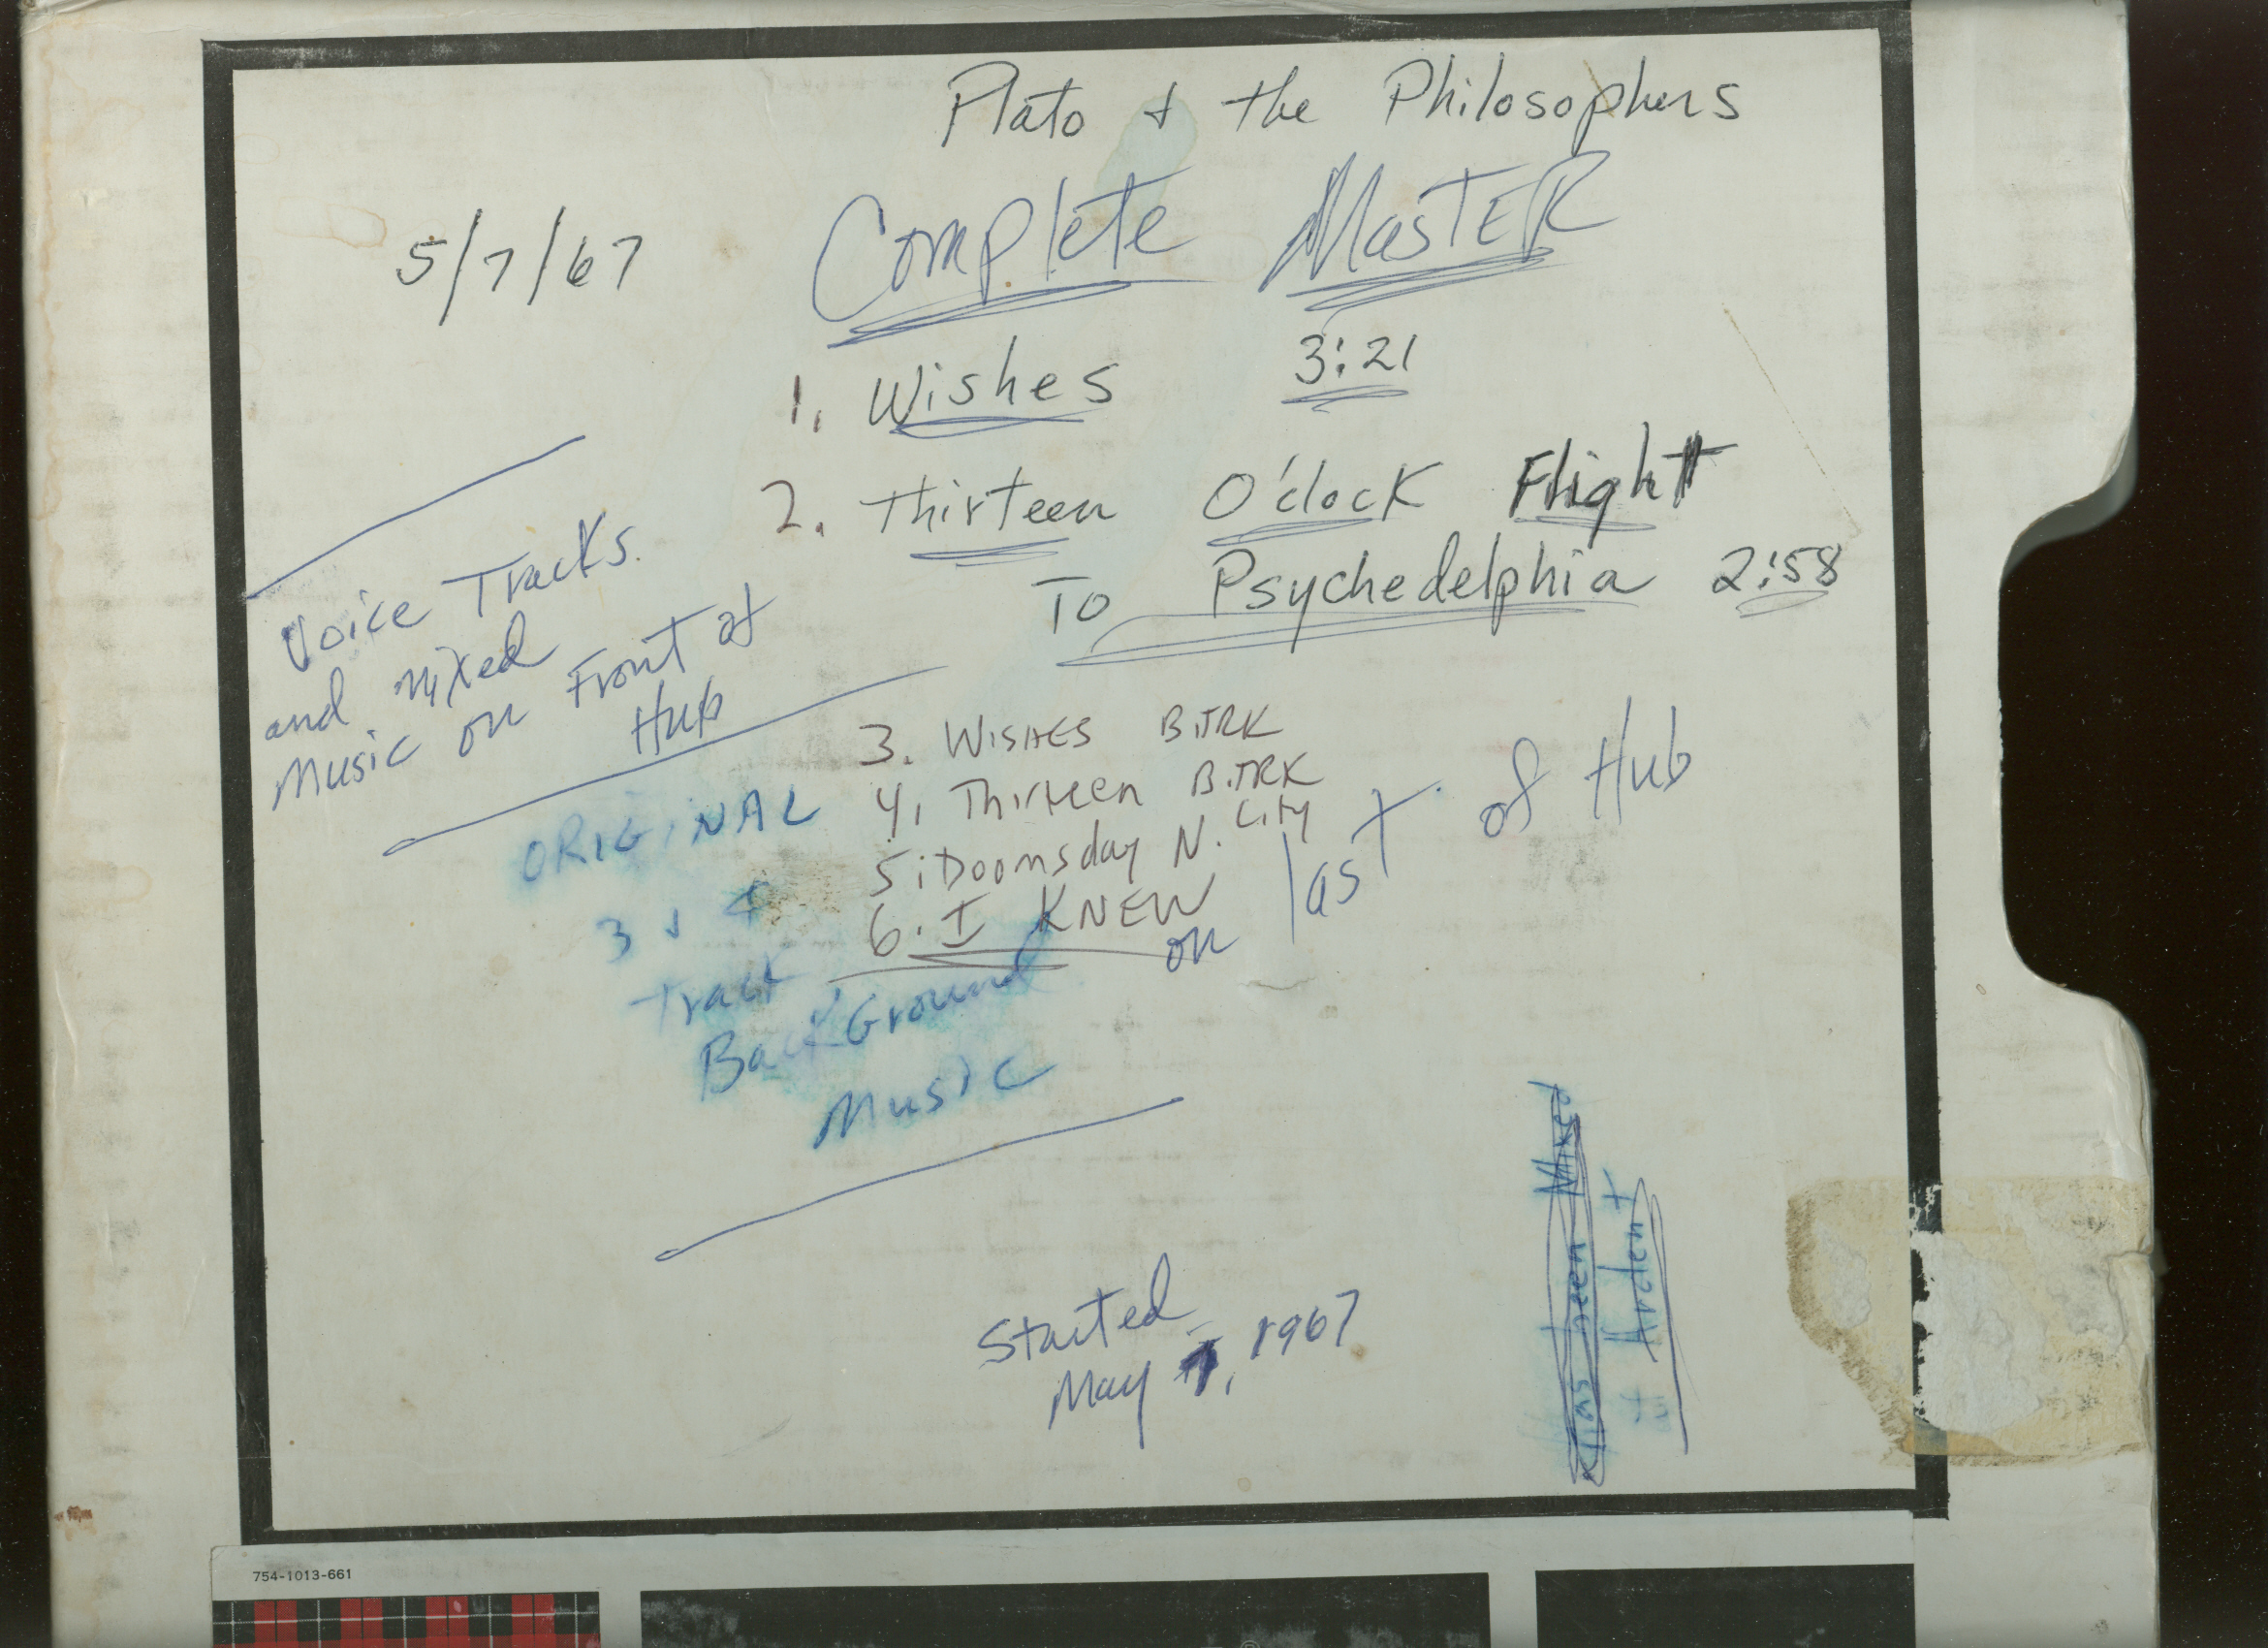 Plato + the Philosophers
5/7/67
Complete MasTER
1. Wishes 3:21
2. Thirteen O'clock Flight
To Psychedelphia 2:58
Voice Tracks.
and mixed
Music on Front of
Hub
3. WISHES B.TRK
4. Thirteen B.TRK
5. Doomsday N. City
6. I KNEW
on last of Hub
ORIGINAL
3 + 4
Track
BackGround
Music
Started
May 7, 1967
Has been Mixed
at Ardent
754-1013-661